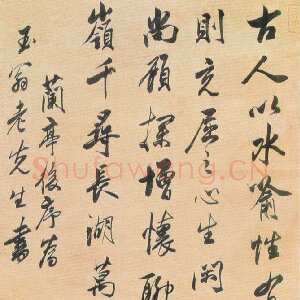 古人以水喻性有
則充屈之心生閑
尚顧探增懷聊
嶺千尋長湖萬
蘭亭後序為
玉翁老先生書
Shufawang.CN